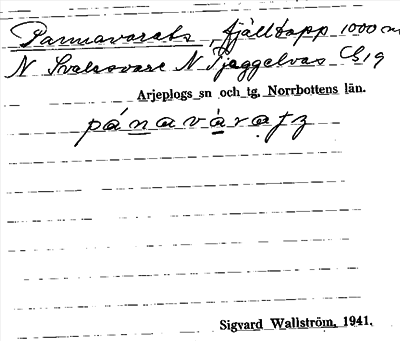 Pannavarats, fjälltopp 1000 m
N Svalsovare N Tjaggelvas Cb, 9
Arjeplogs sn och tg, Norrbottens län.
pánavàratz
Sigvard Wallström, 1941.